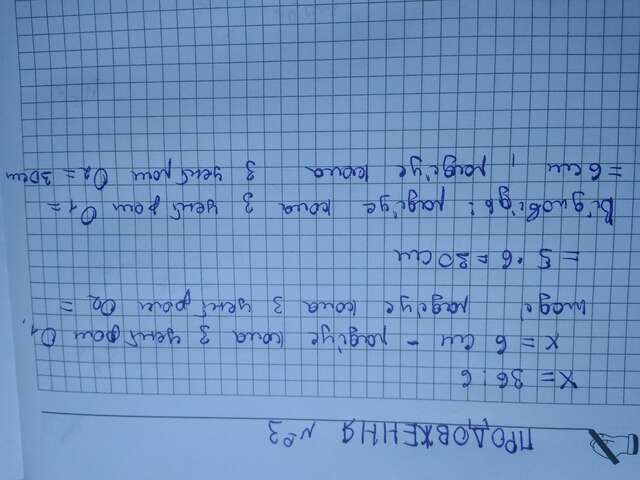 ПРОДОВЖЕННЯ №3
x = 36 : 6
x = 6 см – радіус кола з центром O1,
тоді радіус кола з центром O2 =
= 5 · 6 = 30 см
Відповідь: радіус кола з центром O1 =
= 6 см, радіус кола з центром O2 = 30 см